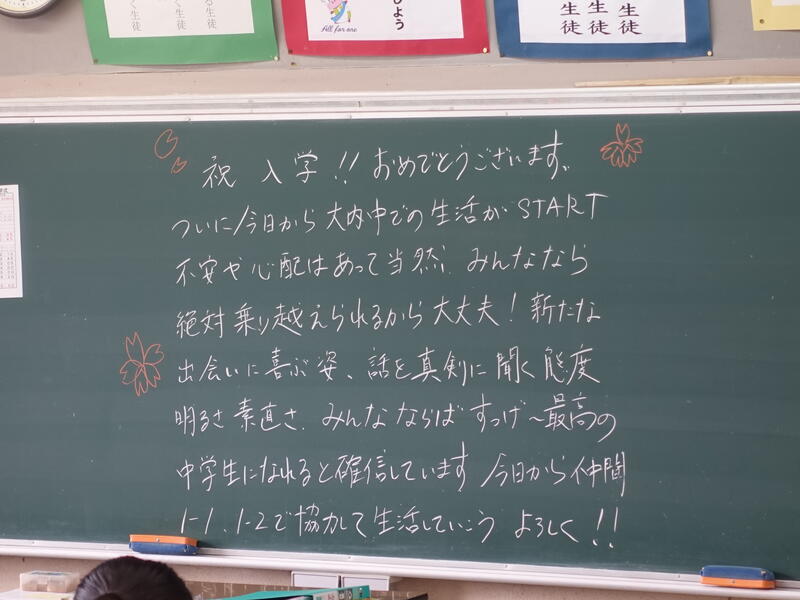 く生徒
く生徒
る生徒
All for one
しよう
生徒
生徒
生徒
祝 入学!! おめでとうございます。
ついに今日から大内中での生活がSTART
不安や心配はあって当然、みんななら
絶対乗り越えられるから大丈夫!新たな
出会いに喜ぶ姿、話を真剣に聞く態度
明るさ素直さ、みんなならばすっげ〜最高の
中学生になれると確信しています 今日から仲間
1-1、1-2で協力して生活していこう よろしく!!